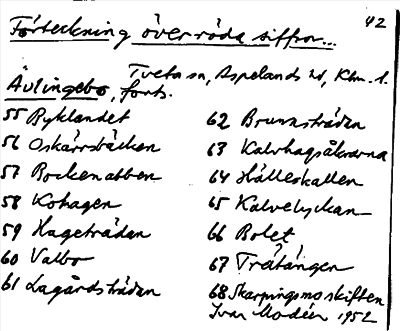 42
Förteckning över röda siffror...
Tveta sn, Aspelands hd, Klm. l.
Åvlingebo, forts.
55 Byklandet
56 Oskärrsbäcken
57 Bockenabben
58 Kohagen
59 Hageträdan
60 Valbo
61 Lagårdsträdan
62 Brunnsträdan
63 Kalvhagsåkrarna
64 Hälleskallen
65 Kalvelyckan
66 Bolet
67 Trätängen
68 Skarpingsmoskiften
Ivar Modéer 1952